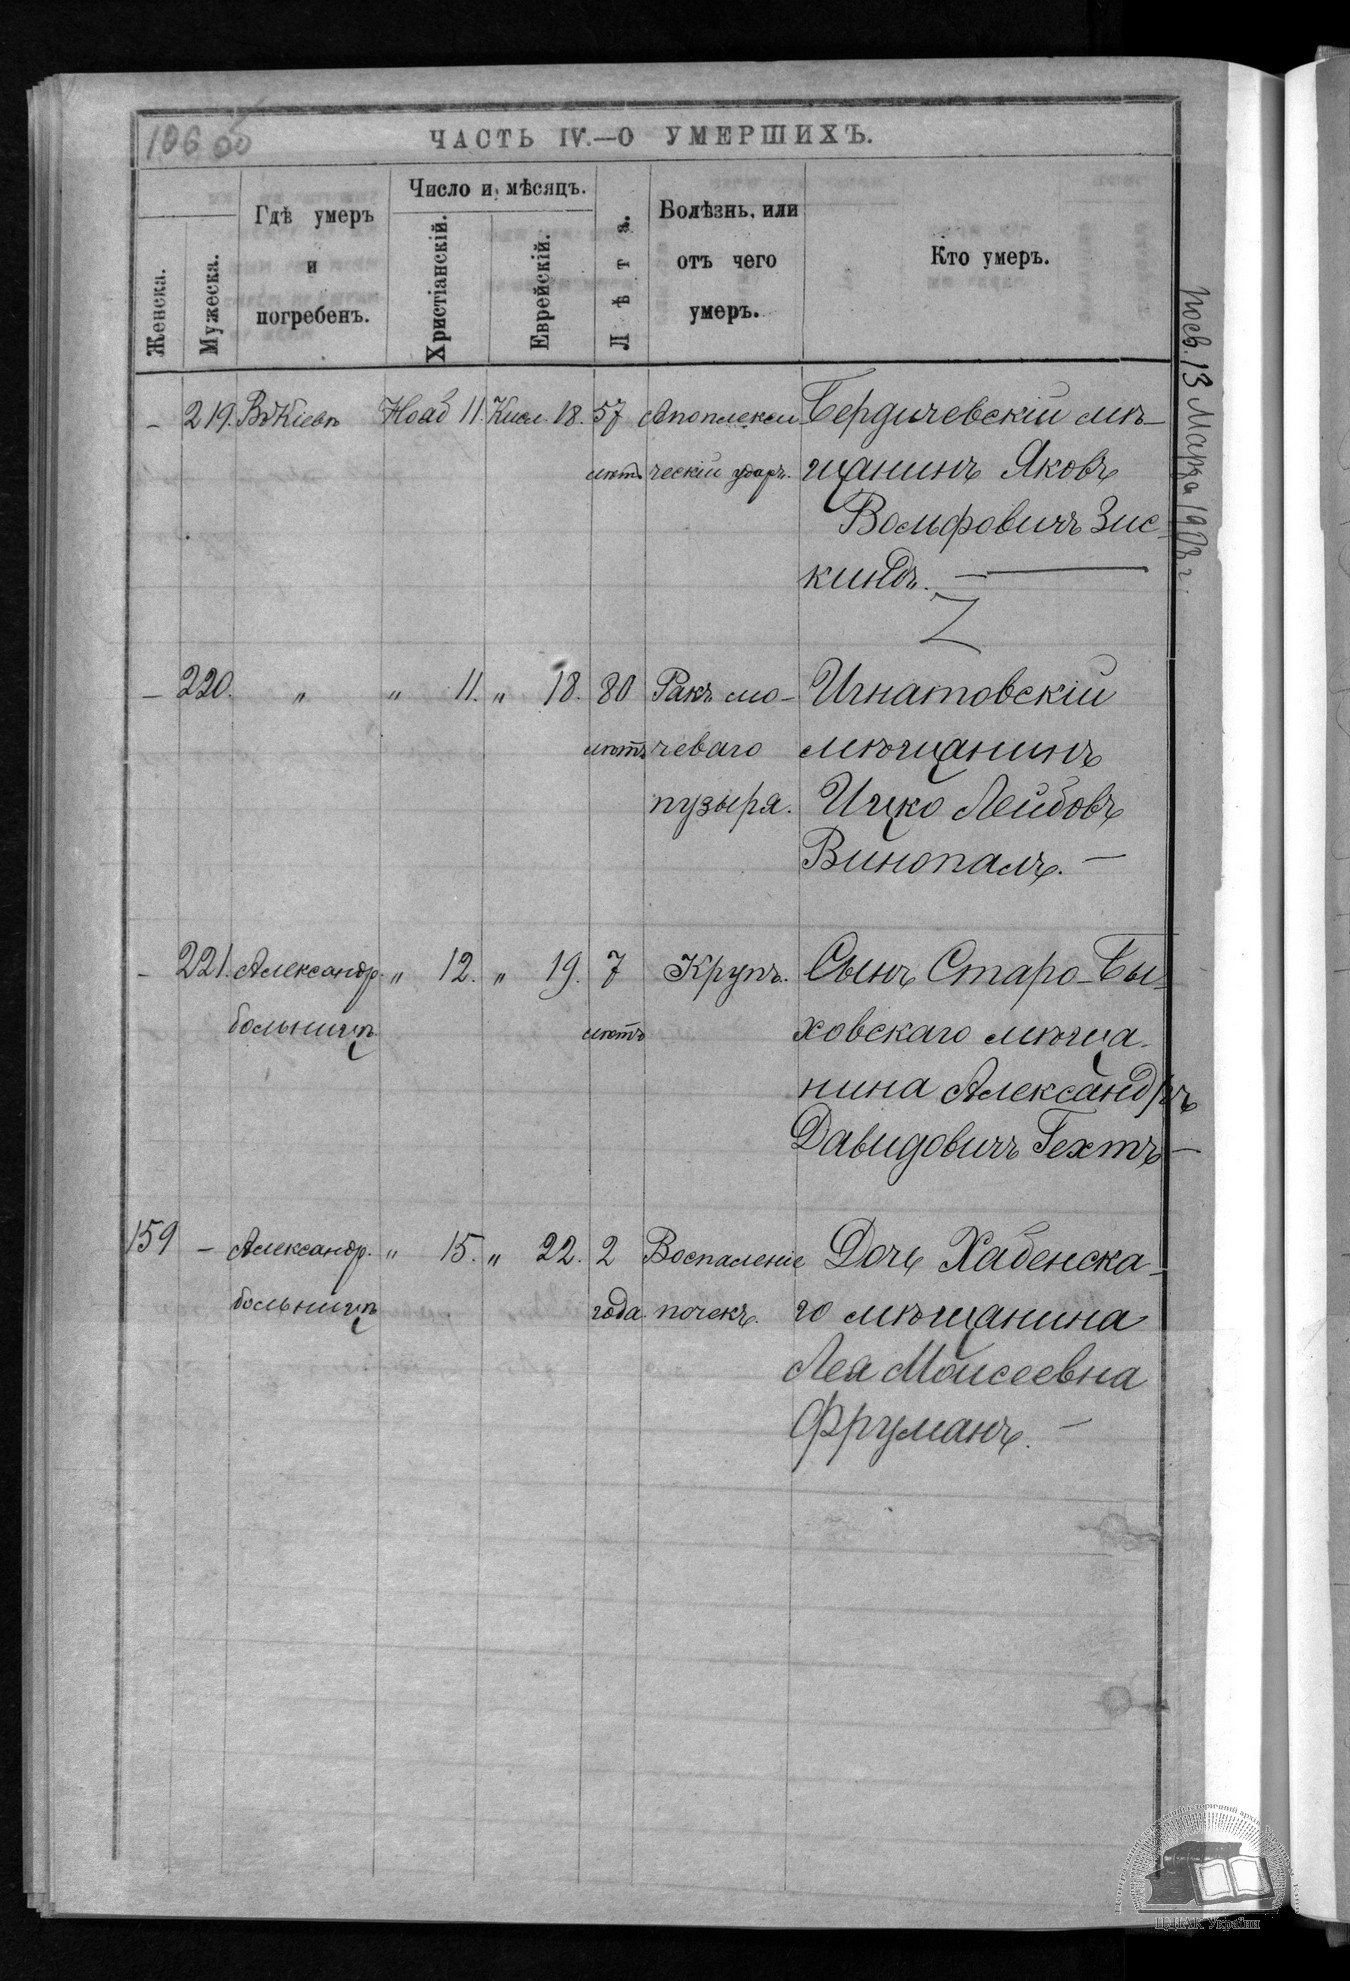 106 об
ЧАСТЬ IV.—О УМЕРШИХЪ.
Женска.
Мужеска.
Гдѣ умеръ
и
погребенъ.
Число и мѣсяцъ.
Христіанскій.
Еврейскій.
Лѣта.
Болѣзнь, или
отъ чего
умеръ.
Кто умеръ.
– 219. Въ Кіевѣ Нояб 11. Кисл. 18. 57 Апоплекси Бердичевскій мѣ-
лѣтъ ческій ударъ. щанинъ Яковъ
Вольфовичъ Зис-
киндъ. —
– 220. „ „ 11. „ 18. 80 Ракъ мо- Игнатовскій
лѣтъ чеваго мѣщанинъ
пузыря. Ицко Лейбовъ
Винопалъ. —
– 221. Александр. „ 12. „ 19. 7 Крупъ. Сынъ Старо-Бы-
больницѣ лѣтъ ховскаго мѣща-
нина Александръ
Давидовичъ Гехтъ —
159 – Александр. „ 15. „ 22. 2 Воспаленіе Дочь Хабенска-
больницѣ года. почекъ. го мѣщанина
Лея Моисеевна
Фруманъ. —
13 Марта 190
ЦДІАК України